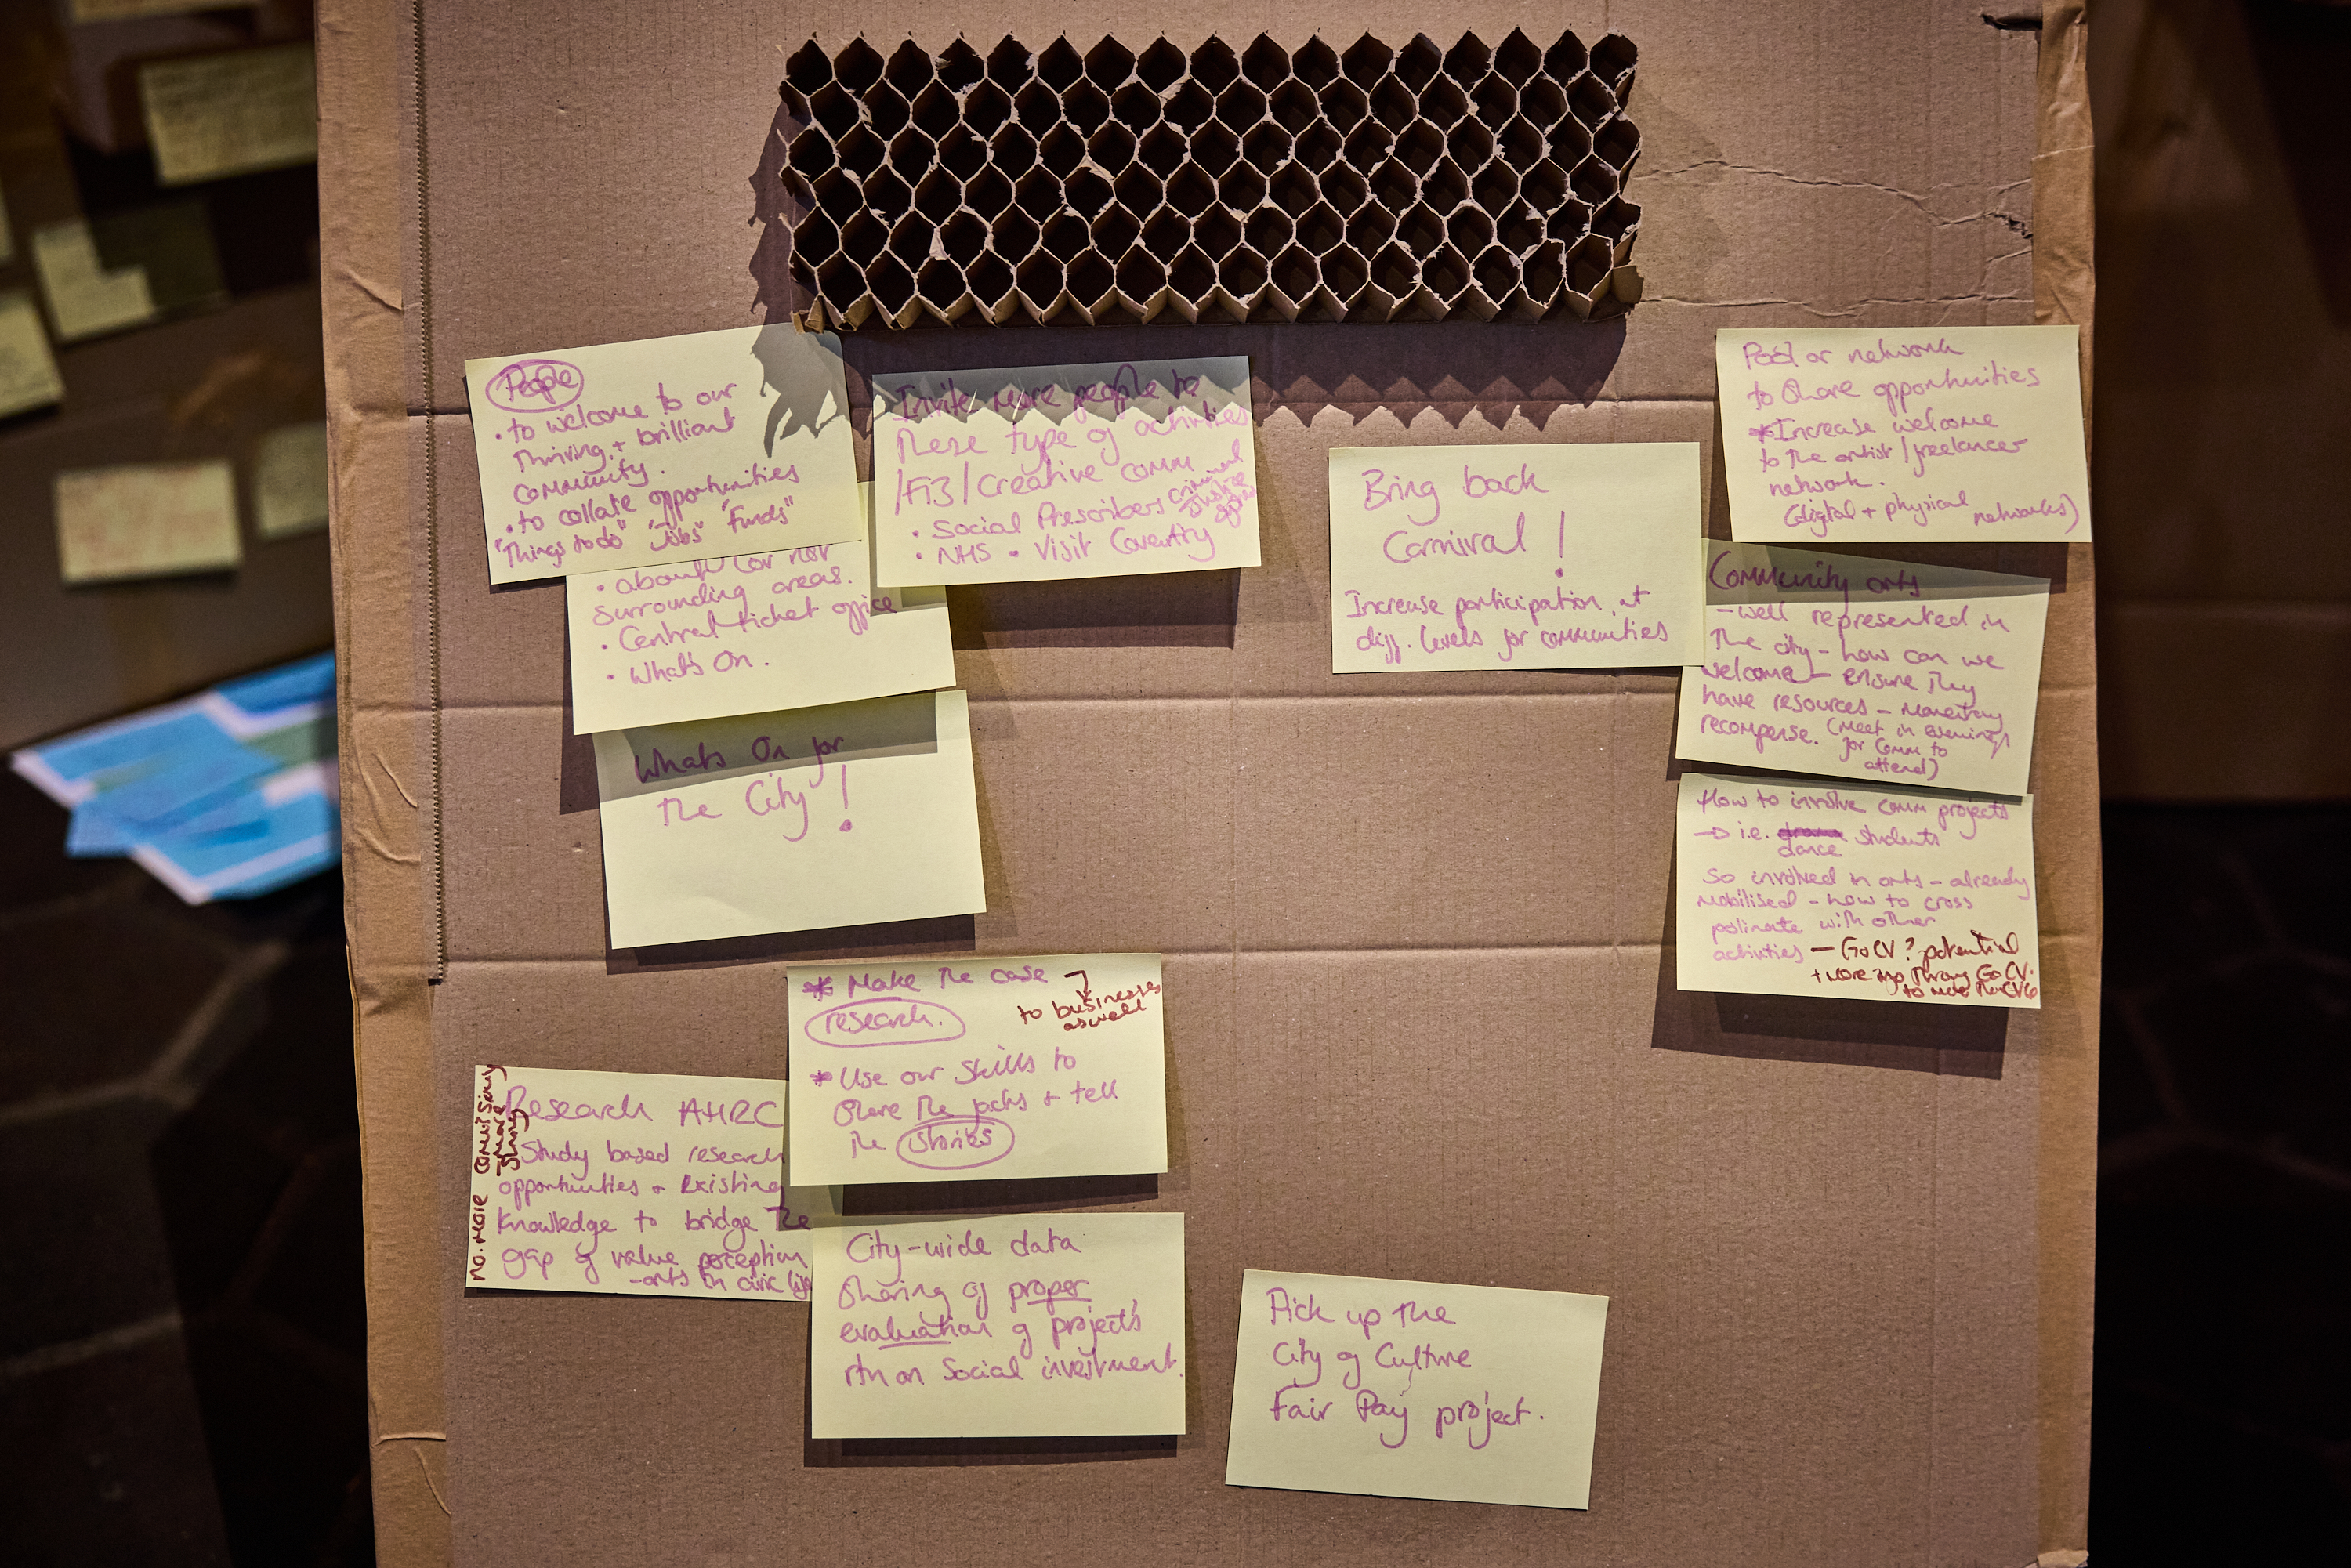 People
• to welcome to our
thriving + brilliant
community.
• to collate opportunities
"Things to do" "Jobs" "Funds"
surrounding areas.
• Central ticket office
• What's On.
Whats On for
the City!
Invite more people to
these type of activities
/ creative comm
• Social Prescribers criminal justice
• NHS • Visit Coventry
Bring back
Carnival!
Increase participation at
diff. levels for communities
Pool or network
to share opportunities
*Increase welcome
to the artist / freelancer
network.
(digital + physical networks)
Community arts
- well represented in
the city - how can we
welcome - ensure they
have resources - monetary
recompense. (meet in evenings
for comm to
attend)
How to involve comm projects
→ i.e. students
dance
So involved in arts - already
mobilised - how to cross
polinate with other
activities - Go CV? potential
* Make the case
research.
to businesses
as well
* Use our skills to
share the facts + tell
the stories
Research AHRC
Study based research
opportunities + existing
knowledge to bridge the
gap of value perception
- arts in civic life
City-wide data
sharing of proper
evaluation of projects
rtn on Social investment.
Pick up the
City of Culture
Fair Pay project.